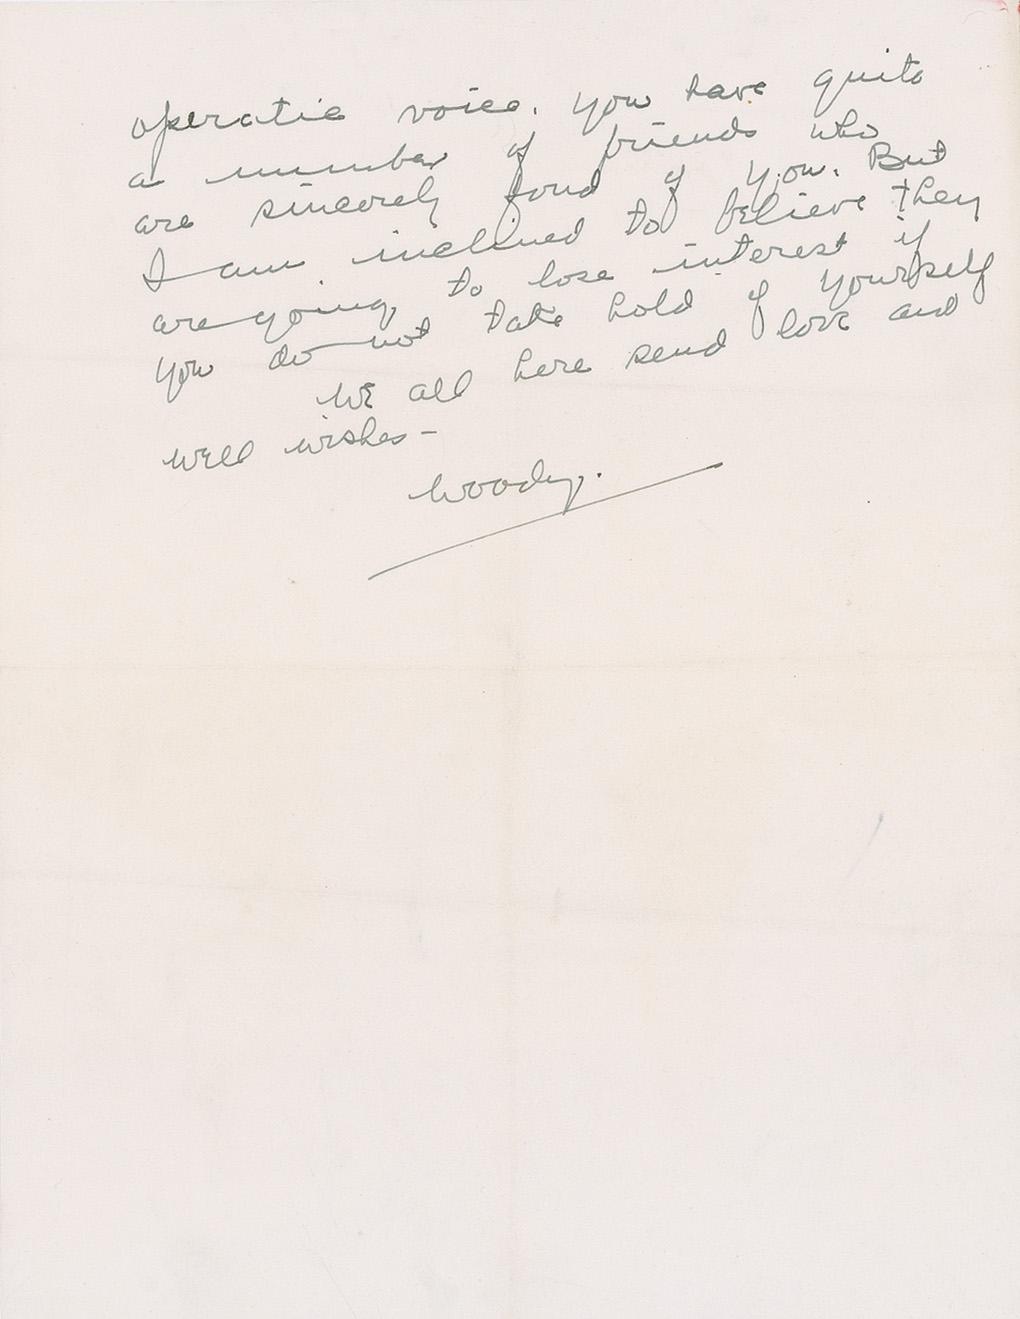 operatic voice. You have quite
a number of friends who
are sincerely fond of you. But
I am inclined to believe they
are going to lose interest if
you do not take hold of yourself
We all here send love and
well wishes-
Woody.